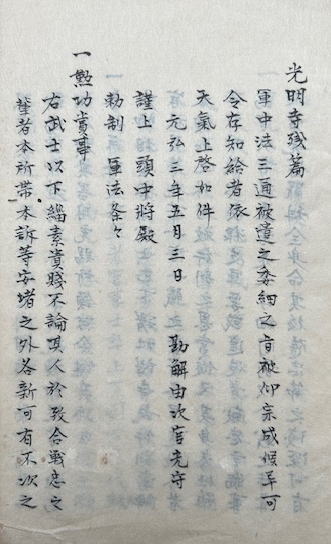 光明寺残篇
軍中法三通被遣之委細之旨被仰宗成候早可
令存知給者依
天氣上啓如件
元弘三年五月三日 勘解由次官光守
謹上 頭中将殿
勅制 軍法条々
一勲功賞事
右武士以下緇素貴賤不論其人於致合戦忠之
輩者本所帯本訴等安堵之外各新可有不次之